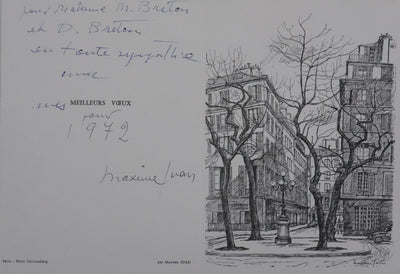 pour Madame M. Breton
et D. Breton
en toute sympathie
avec
mes
MEILLEURS VŒUX
pour
1972
Maxime Juan
Paris - Place Furstenberg
par Maxime JUAN
Maxime Juan